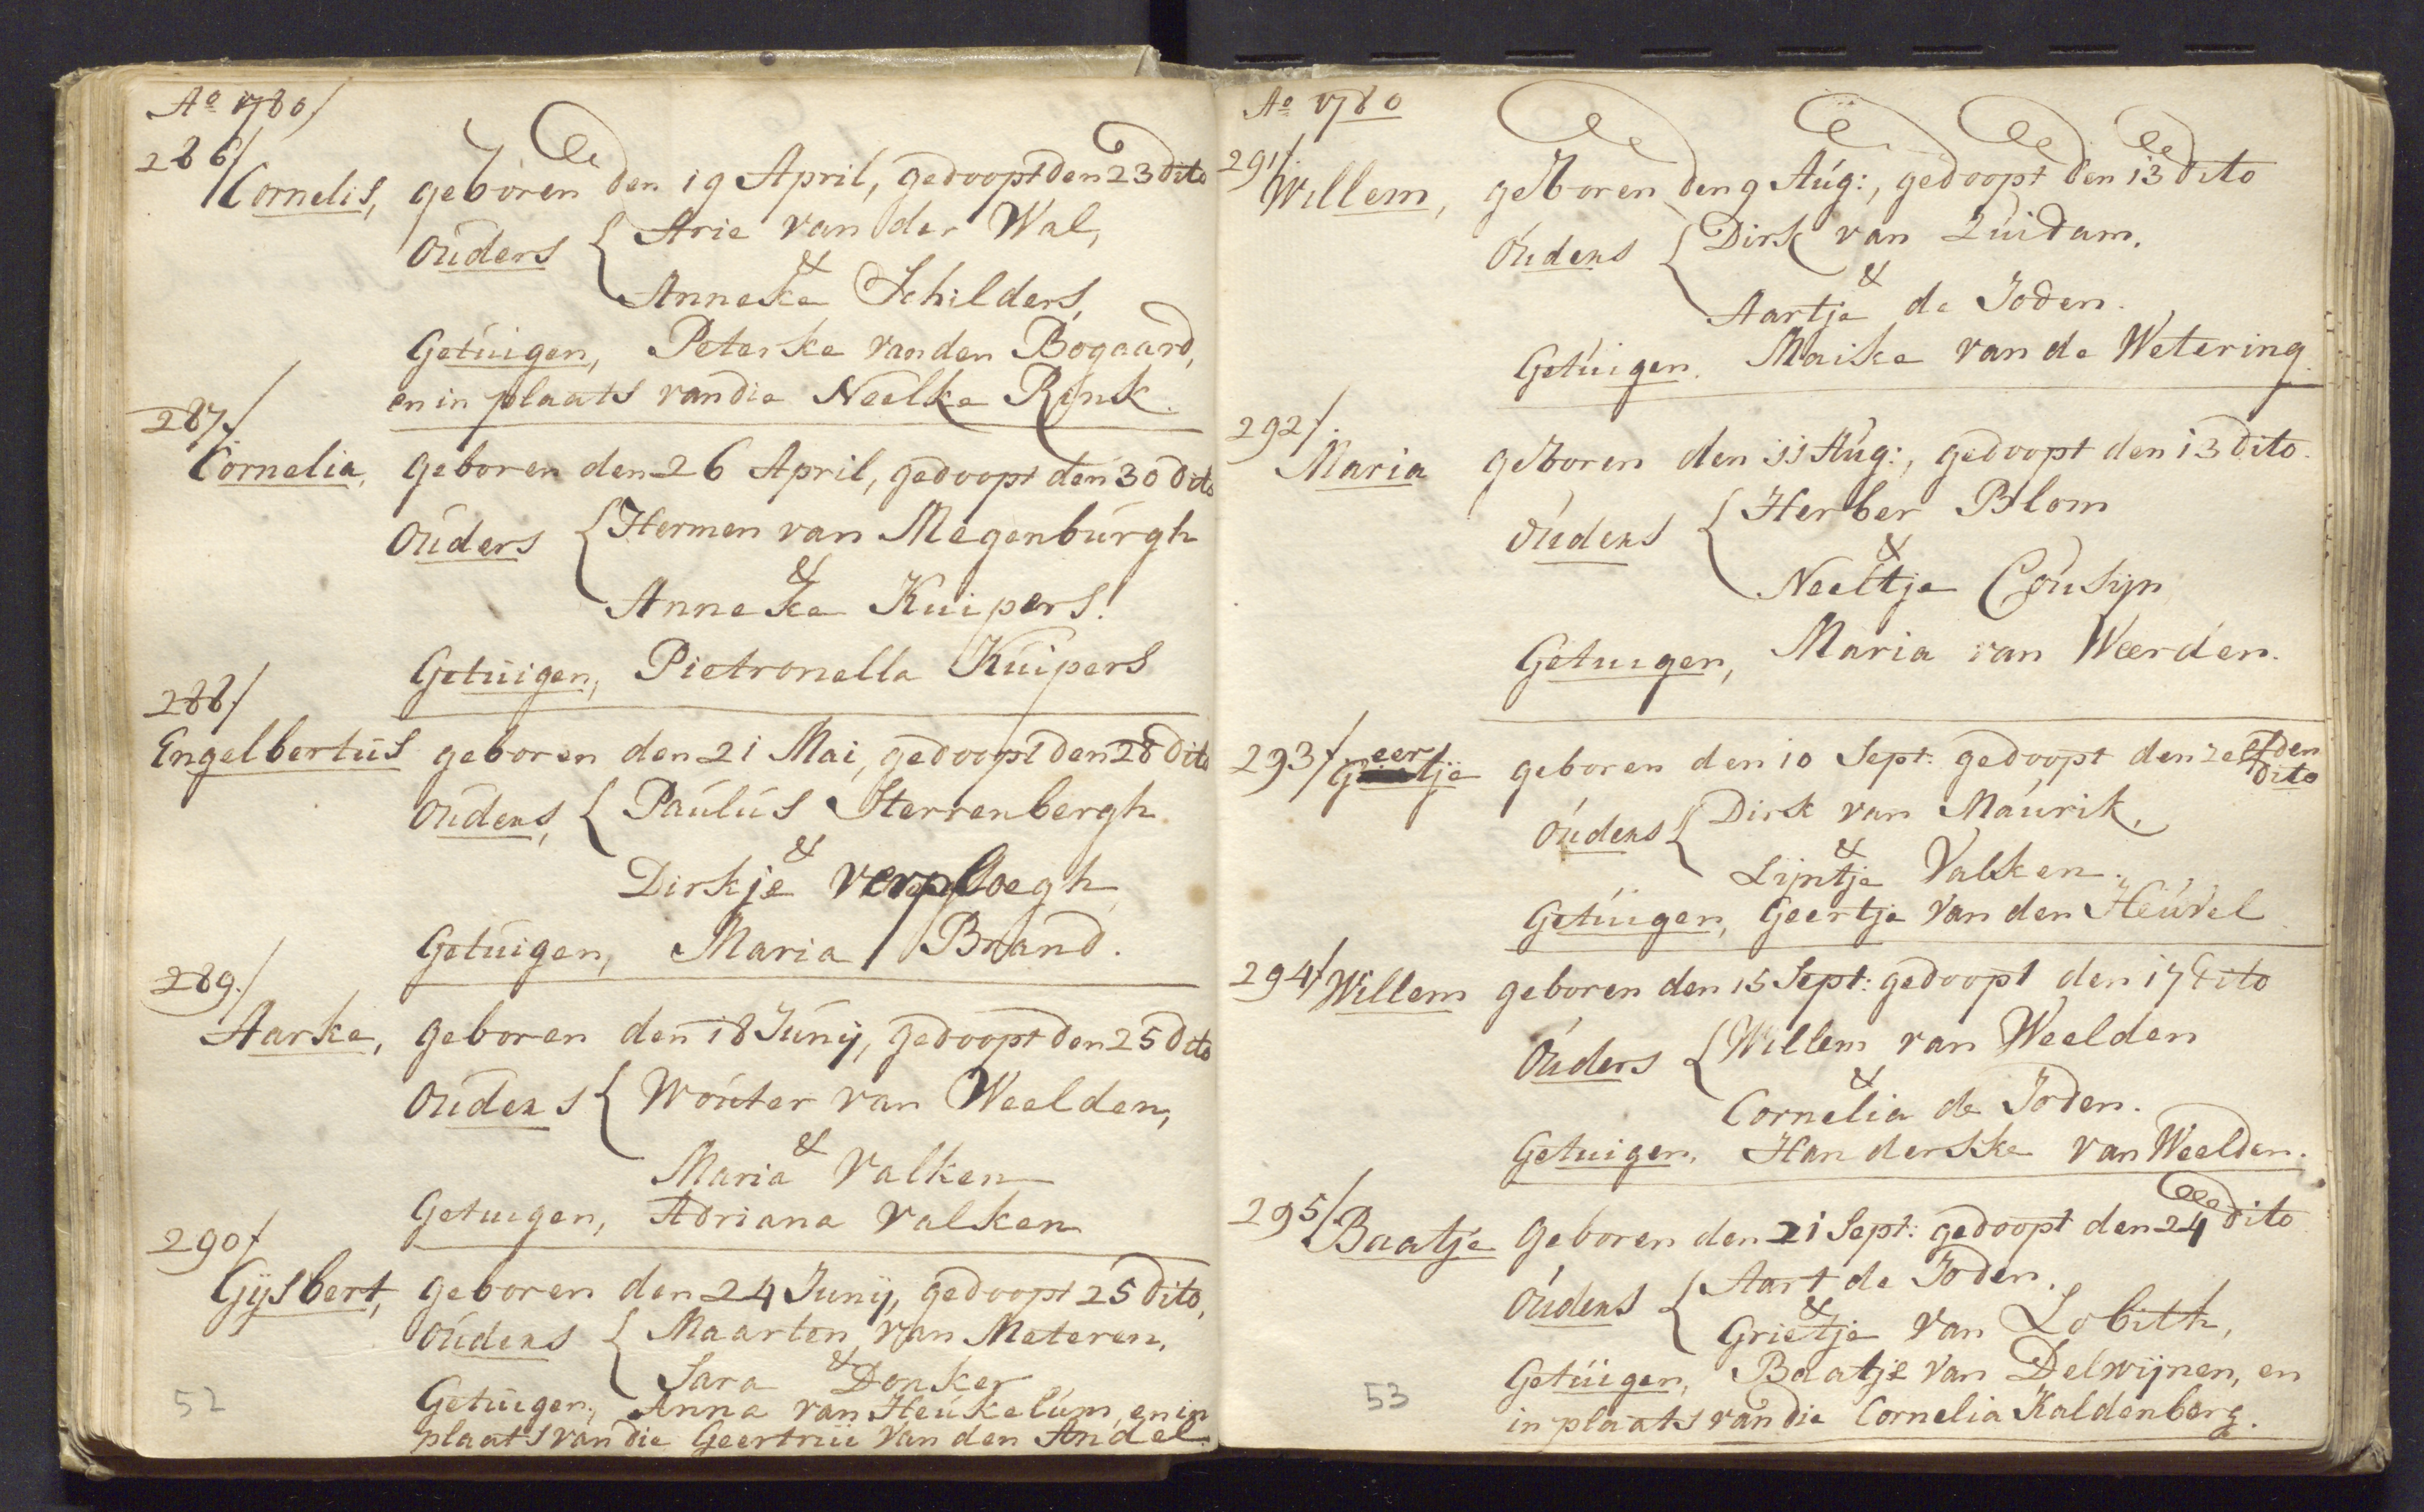 Ao 1780/
286/
Cornelis, geboren den 19 April, gedoopt den 23 dito
Ouders { Arie van der Wal,
&
Anneke Schilders,
Getuigen, Peterske van den Bogaard,
en in plaats van die Neelke Rink.
287/
Cornelia, geboren den 26 April, gedoopt den 30 dito
Ouders { Hermen van Megenburgh
&
Anneke Kuipers.
Getuigen, Pietronella Kuipers
288/
Engelbertus geboren den 21 Mai, gedoopt den 28 dito
Ouders, { Paulus Sterrenbergh
&
Dirkje verploegh
Getuigen, Maria Brand.
289./
Aarke, geboren den 18 Junij, gedoopt den 25 dito
Ouders { Wouter van Weelden,
&
Maria Valken
Getuigen, Adriana Valken
290/
Gijsbert, geboren den 24 Junij, gedoopt 25 dito,
Ouders { Maarten van Meteren,
&
Sara Donker
Getuigen, Anna van Heukelum, en in
plaats van die Geertrui van den Andel.
52
Ao 1780
291/
Willem, geboren den 9 Aug:, gedoopt den 13 dito
Ouders { Dirk van Zuidam,
&
Aartje de Joden.
Getuigen. Maike van de Wetering.
292/.
Maria geboren den 11 Aug:, gedoopt den 13 dito.
Ouders { Herber Blom
&
Neeltje Cousijn
Getuigen, Maria van Weerden.
293/ Geertje geboren den 10 Sept: gedoopt den zelfden
dito
Ouders { Dirk van Maurik,
&
Lijntje Valken.
Getuigen, Geertje van den Heuvel
294/ Willem geboren den 15 Sept: gedoopt den 17 dito
Ouders { Willem van Weelden
&
Cornelia de Joden.
Getuigen, Handerske van Weelden.
295/
Baatje geboren den 21 Sept: gedoopt den 24 dito
Ouders { Aart de Joden.
&
Grietje van Lobith,
Getuigen, Baatje van Delwijnen, en
in plaats van die Cornelia Kaldenberg.
53